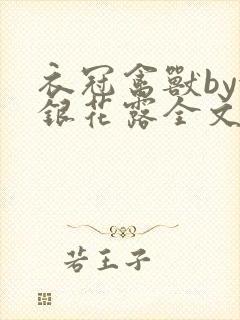 衣冠禽獸by
銀花露全文
若王子